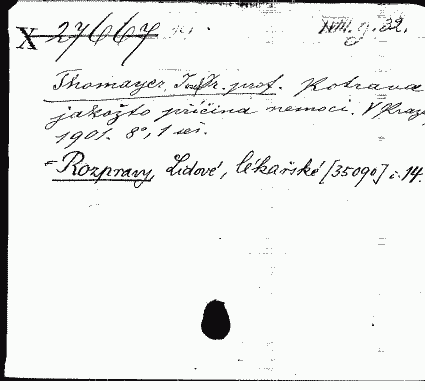 X 27667
Thomayer, Jos. Dr. prof. Potrava
jakožto příčina nemoci. V Praze
1901. 8°, 1 seš.
= Rozpravy, Lidové, lékařské [35090] č. 14.